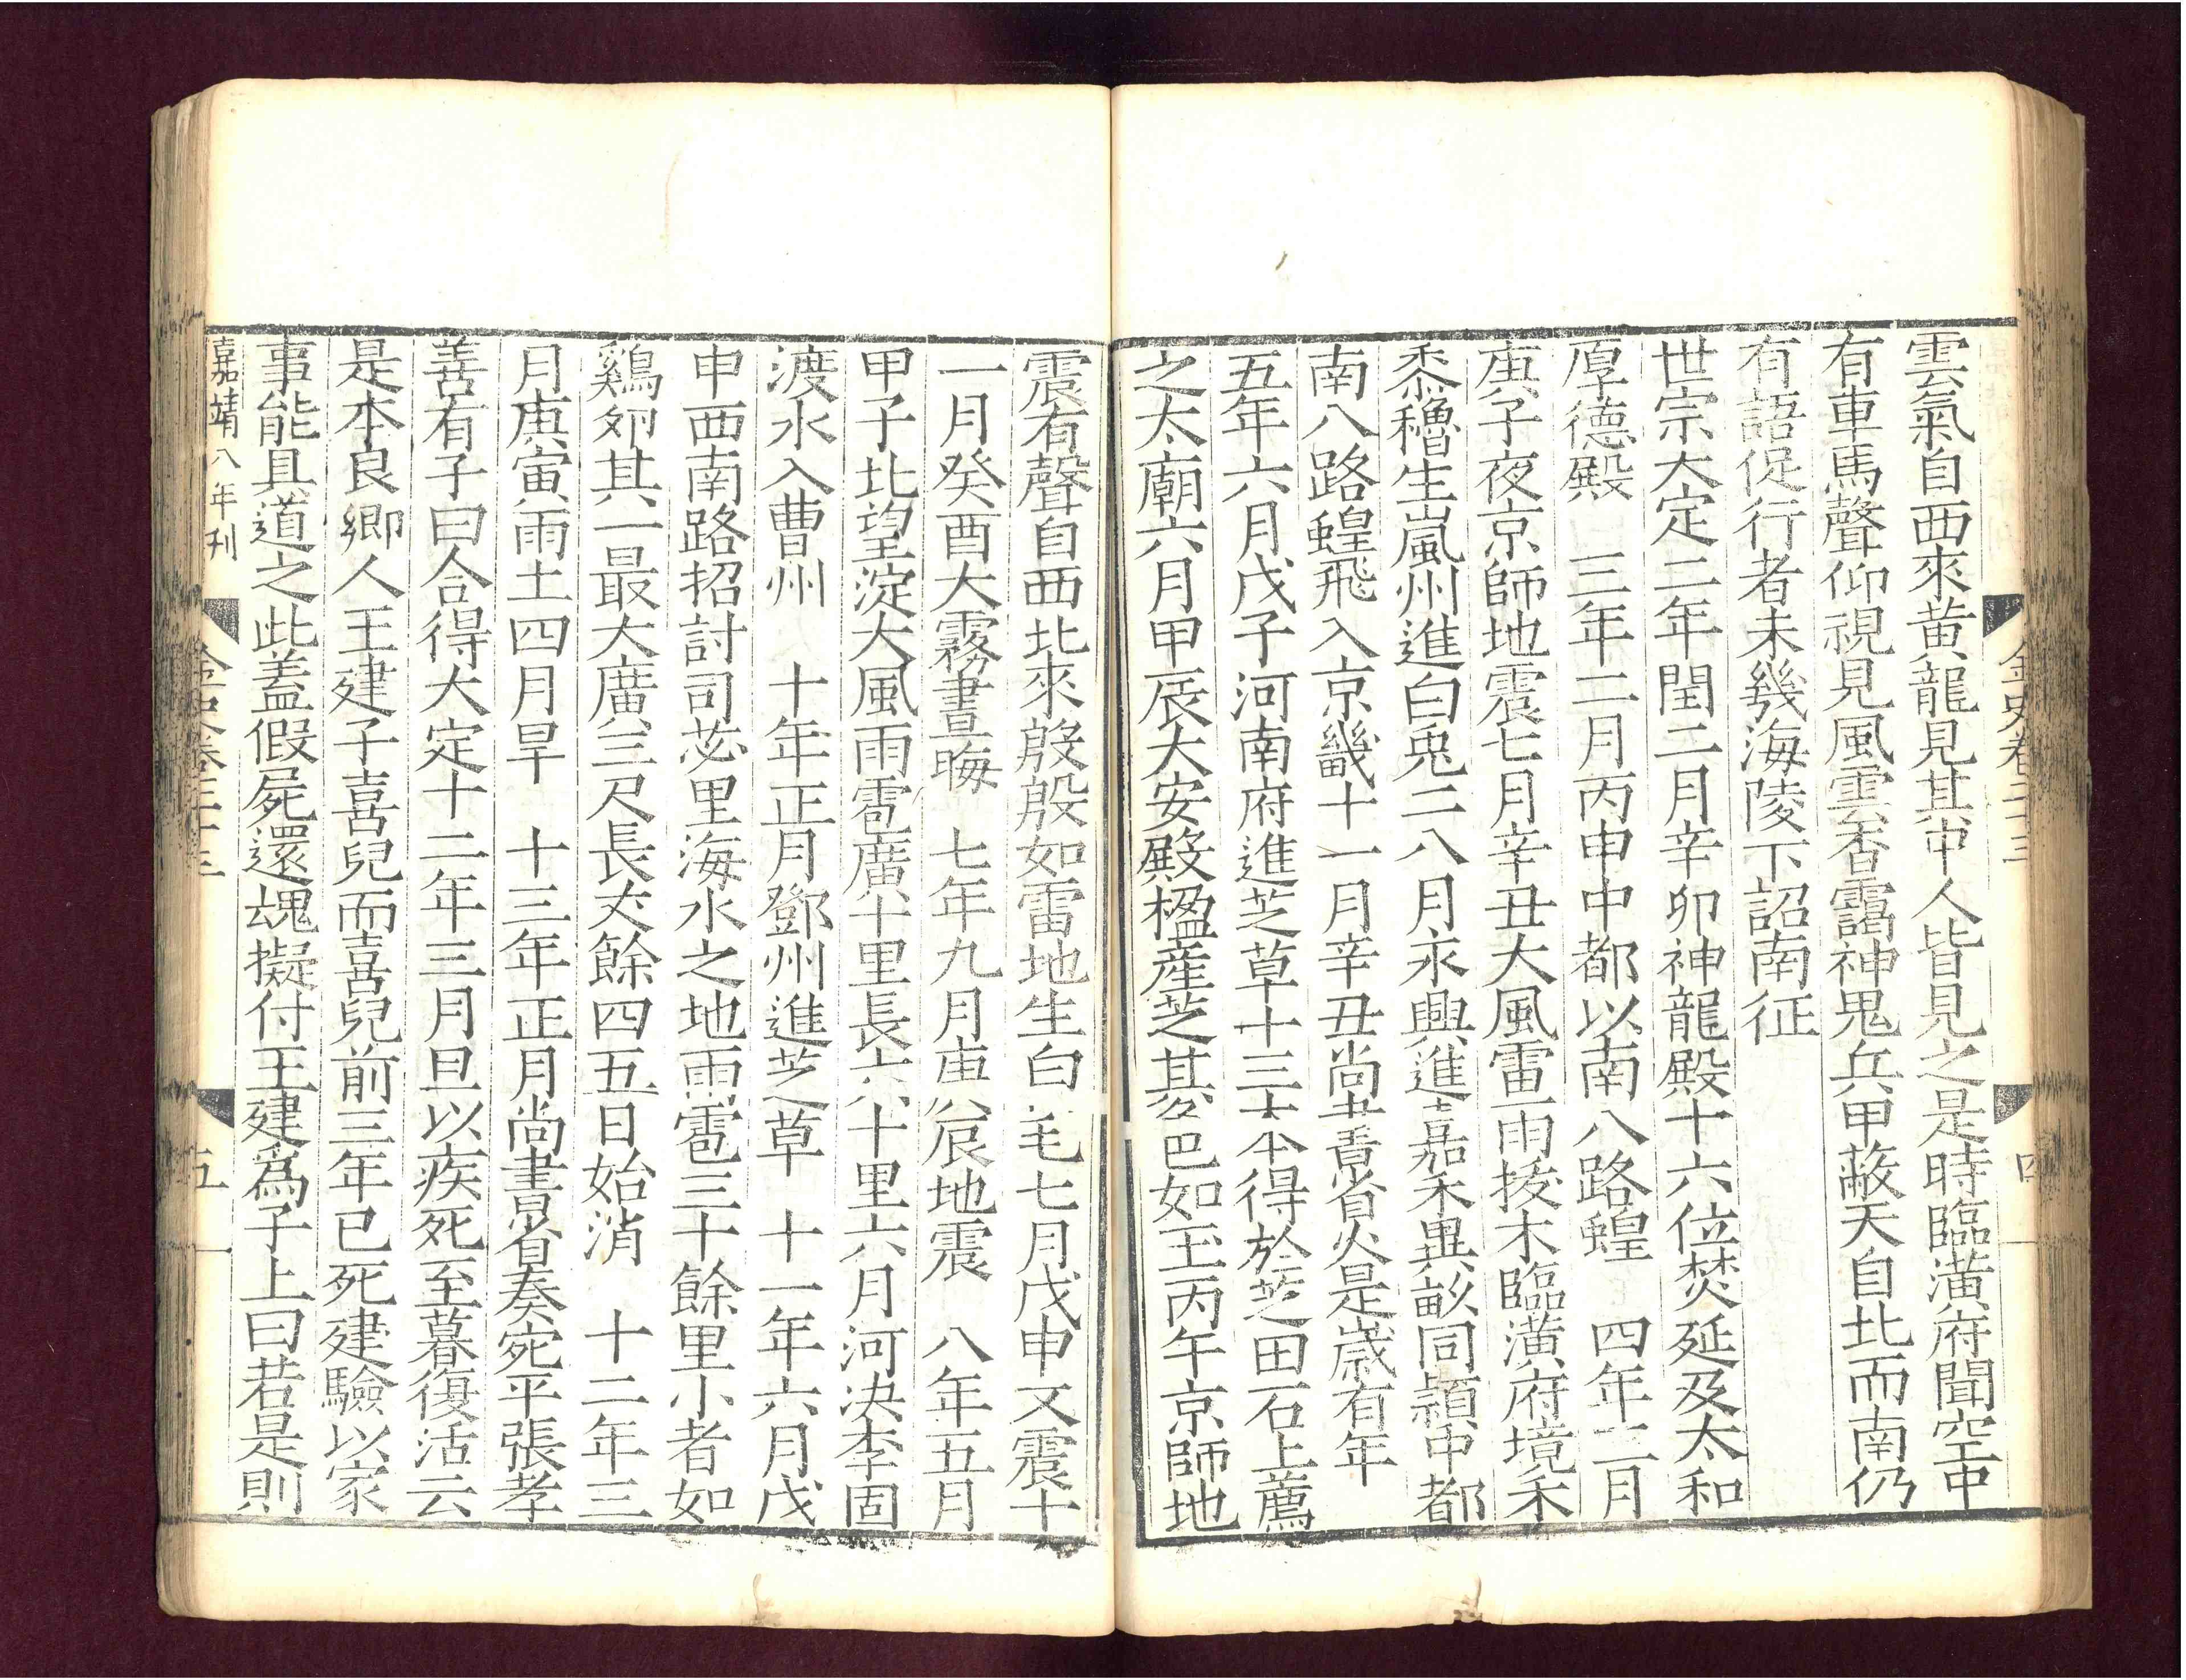 雲氣自西來黃龍見其中人皆見之是時臨潢府聞空中
有車馬聲仰視見風雲杳靄神鬼兵甲蔽天自北而南仍
有語促行者未幾海陵下詔南征
世宗大定二年閏二月辛卯神龍殿十六位焚延及太和
厚德殿 三年二月丙申中都以南八路蝗 四年三月
庚子夜京師地震七月辛丑大風雷雨拔木臨潢府境禾
黍穭生嵐州進白兎二八月永興進嘉禾異畝同穎中都
南八路蝗飛入京畿十一月辛丑尚書省火是歲有年
五年六月戊子河南府進芝草十三本得於芝田石上薦
之太廟六月甲辰大安殿楹産芝其色如玉丙午京師地
金史卷二十三
四
震有聲自西北來殷殷如雷地生白毛七月戊申又震十
一月癸酉大霧晝晦 七年九月庚辰地震 八年五月
甲子北望淀大風雨雹廣十里長六十里六月河決李固
渡水入曹州 十年正月鄧州進芝草 十一年六月戊
申西南路招討司苾里海水之地雨雹三十餘里小者如
鷄卵其一最大廣三尺長丈餘四五日始消 十二年三
月庚寅雨土四月旱 十三年正月尚書省奏宛平張孝
善有子曰合得大定十二年三月旦以疾死至暮復活云
是本良鄉人王建子喜兒而喜兒前三年已死建驗以家
事能具道之此蓋假屍還魂擬付王建爲子上曰若是則
嘉靖八年刊
金史卷二十三
五